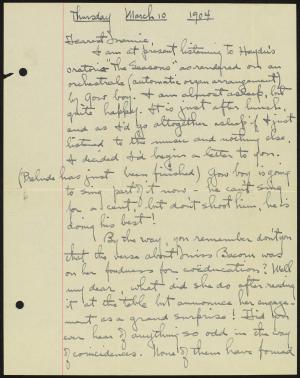 Thursday March 10 1904
Dearest
I am at present listening to Haydn's
oratorio "The Seasons" as rendered on an
orchestrelle (automatic organ arrangement)
by boy. I am almost asleep, but
quite happy. It is just after lunch,
and as I'd go altogether asleep if I just
listened to the music and nothing else,
I decided I'd begin a letter to you.
(Prelude has just been finished) boy is going
to sing part of it now - he can't sing
for - I can't! but don't shoot him, he is
doing his best!
By the way, you remember don't you
that the verse about Miss Bacon was
on her fondness for coëducation? Well
my dear, what did she do after reading
it at the table but announce her engage-
ment as a grand surprise! Did you
ever hear of anything so odd in the way
of coincidences. None of them have found